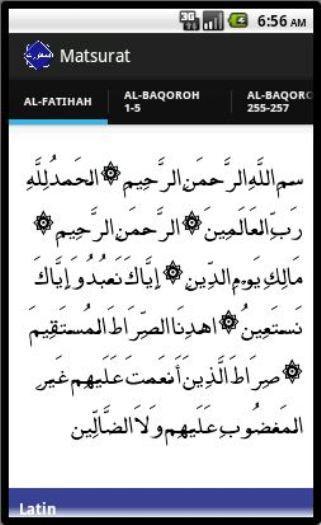 3G
6:56 AM
Matsurat
AL-FATIHAH
AL-BAQOROH 1-5
AL-BAQORO 255-257
سم اللَّهِ الرَّحمَنِ الرَّحِيمِ ۞ الحَمدُ لِلَّهِ
رَبِّ العَالَمِينَ ۞ الرَّحمَنِ الرَّحِيمِ ۞
مَالِكِ يَومِ الدِّينِ ۞ إِيَّاكَ نَعبُدُ وَ إِيَّاكَ
نَستَعِينُ ۞ اهدِنَا الصِّرَاطَ المُستَقِيمَ
۞ صِرَاطَ الَّذِينَ أَنعَمتَ عَلَيهِم غَيرِ
المَغضُوبِ عَلَيهِم وَلاَ الضَّالِّينَ
Latin